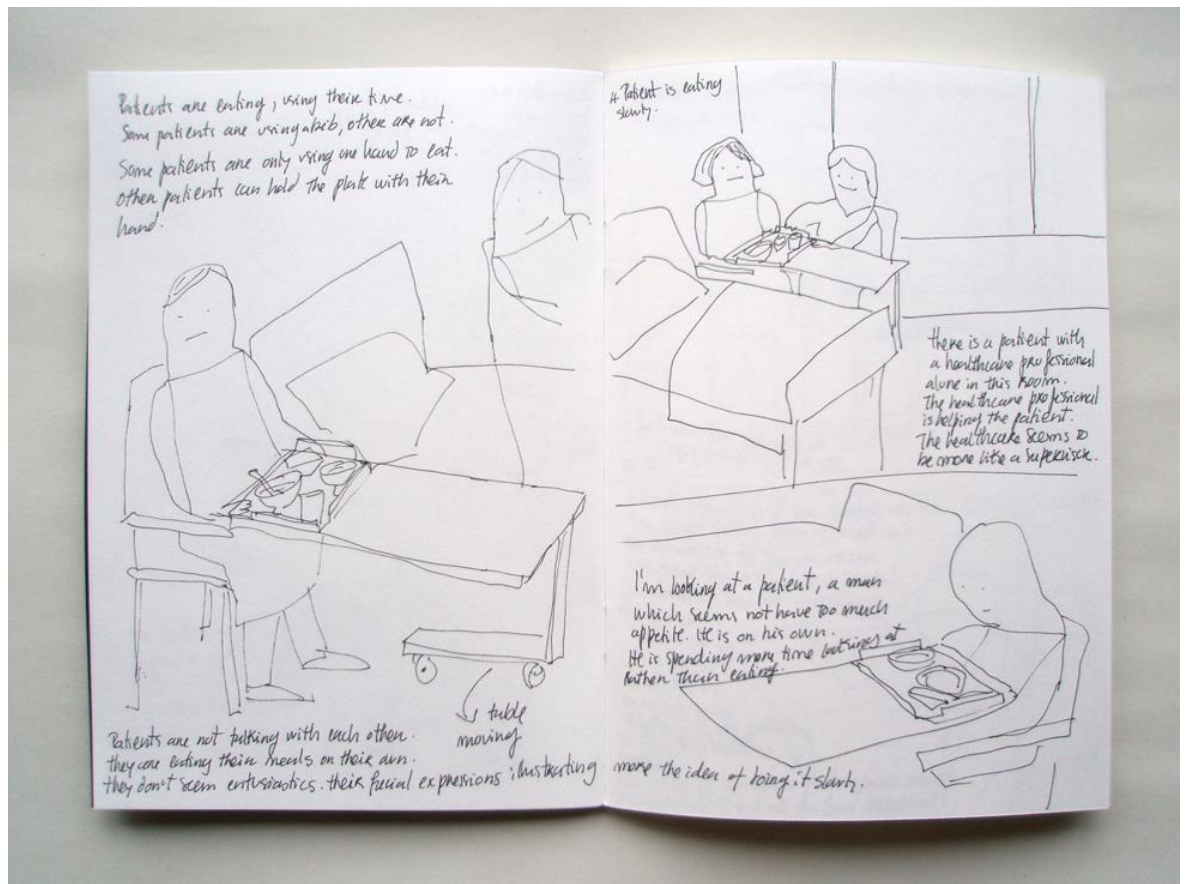 Patients are eating, using their time.
Some patients are using a bib, other are not.
Some patients are only using one hand to eat.
other patients can hold the plate with their
hand.
Patients are not talking with each other.
they are eating their meals on their own.
they don't seem entusiastics. their facial expressions illustrating more the idea of doing it slowly.
table
moving
Patient is eating
slowly.
there is a patient with
a healthcare professional
alone in this room.
The healthcare professional
is helping the patient.
The healthcare seems to
be more like a supervisor.
I'm looking at a patient, a man
which seems not have too much
appetite. He is on his own.
He is spending more time looking at
rather than eating.